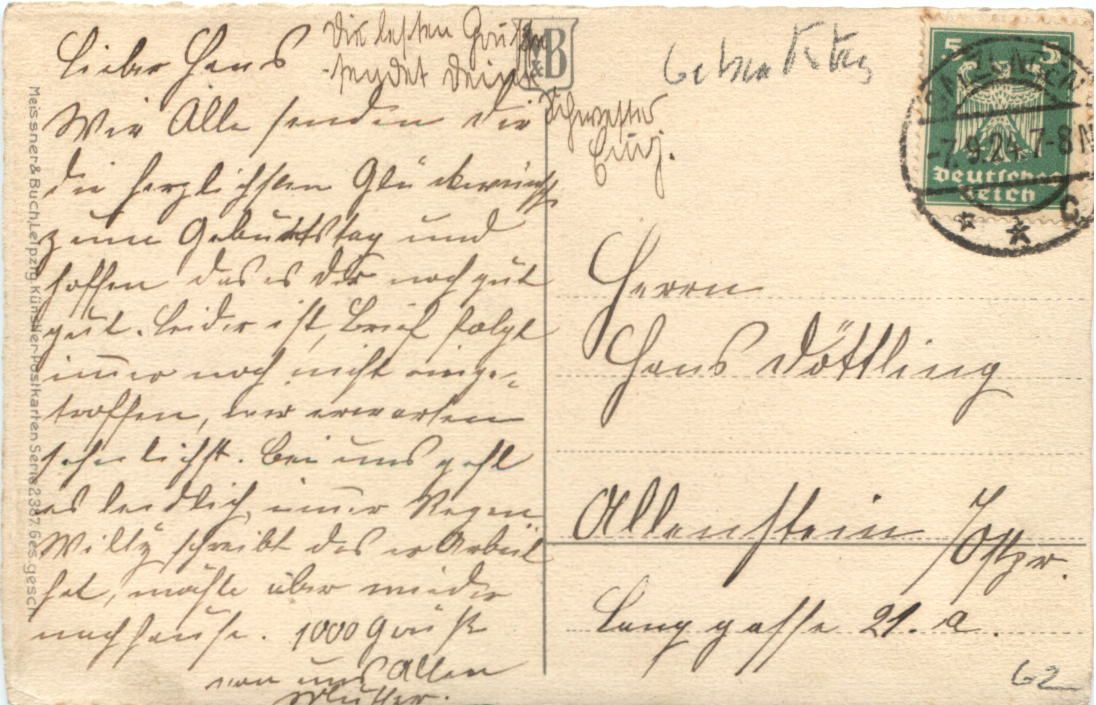 Lieber Hans
Wir Alle senden dir
die herzlichsten Glückwünsche
zum Geburtstag und
hoffen das es dir noch gut
geht. Leider ist, Brief folgt
immer noch nicht einge-
troffen, wir erwarten
sehnlichst. Bei uns geht
es leidlich, immer Regen
Willy schreibt das er Arbeit
hat, möchte aber wieder
nachhause. 1000 Grüße
von uns Allen
Mutter.
Die besten Grüße
sendet Deine
Schwester
M&B
5 5
7.9.24. 7-8 N
Deutsches
Reich
C
Herrn
Hans Döttling
Allenstein /Ostpr.
Langgasse 21. a.
62
Meissner & Buch, Leipzig. Künstler-Postkarten Serie 2387 Ges. gesch.